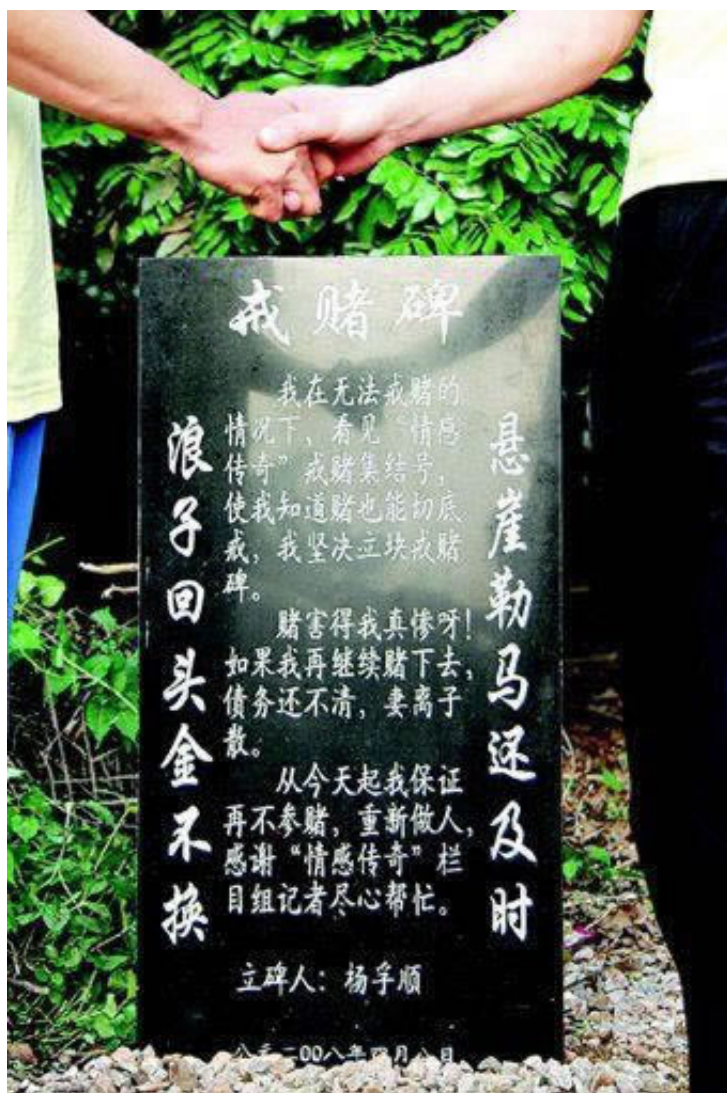 戒赌碑
悬崖勒马还及时
我在无法戒赌的
情况下，看见“情感
传奇”戒赌集结号，
使我知道赌也能切底
戒，我坚决立块戒赌
碑。
赌害得我真惨呀！
如果我再继续赌下去，
债务还不清，妻离子
散。
从今天起我保证
再不参赌，重新做人，
感谢“情感传奇”栏
目组记者尽心帮忙。
浪子回头金不换
立碑人：杨孚顺
二00八年四月八日